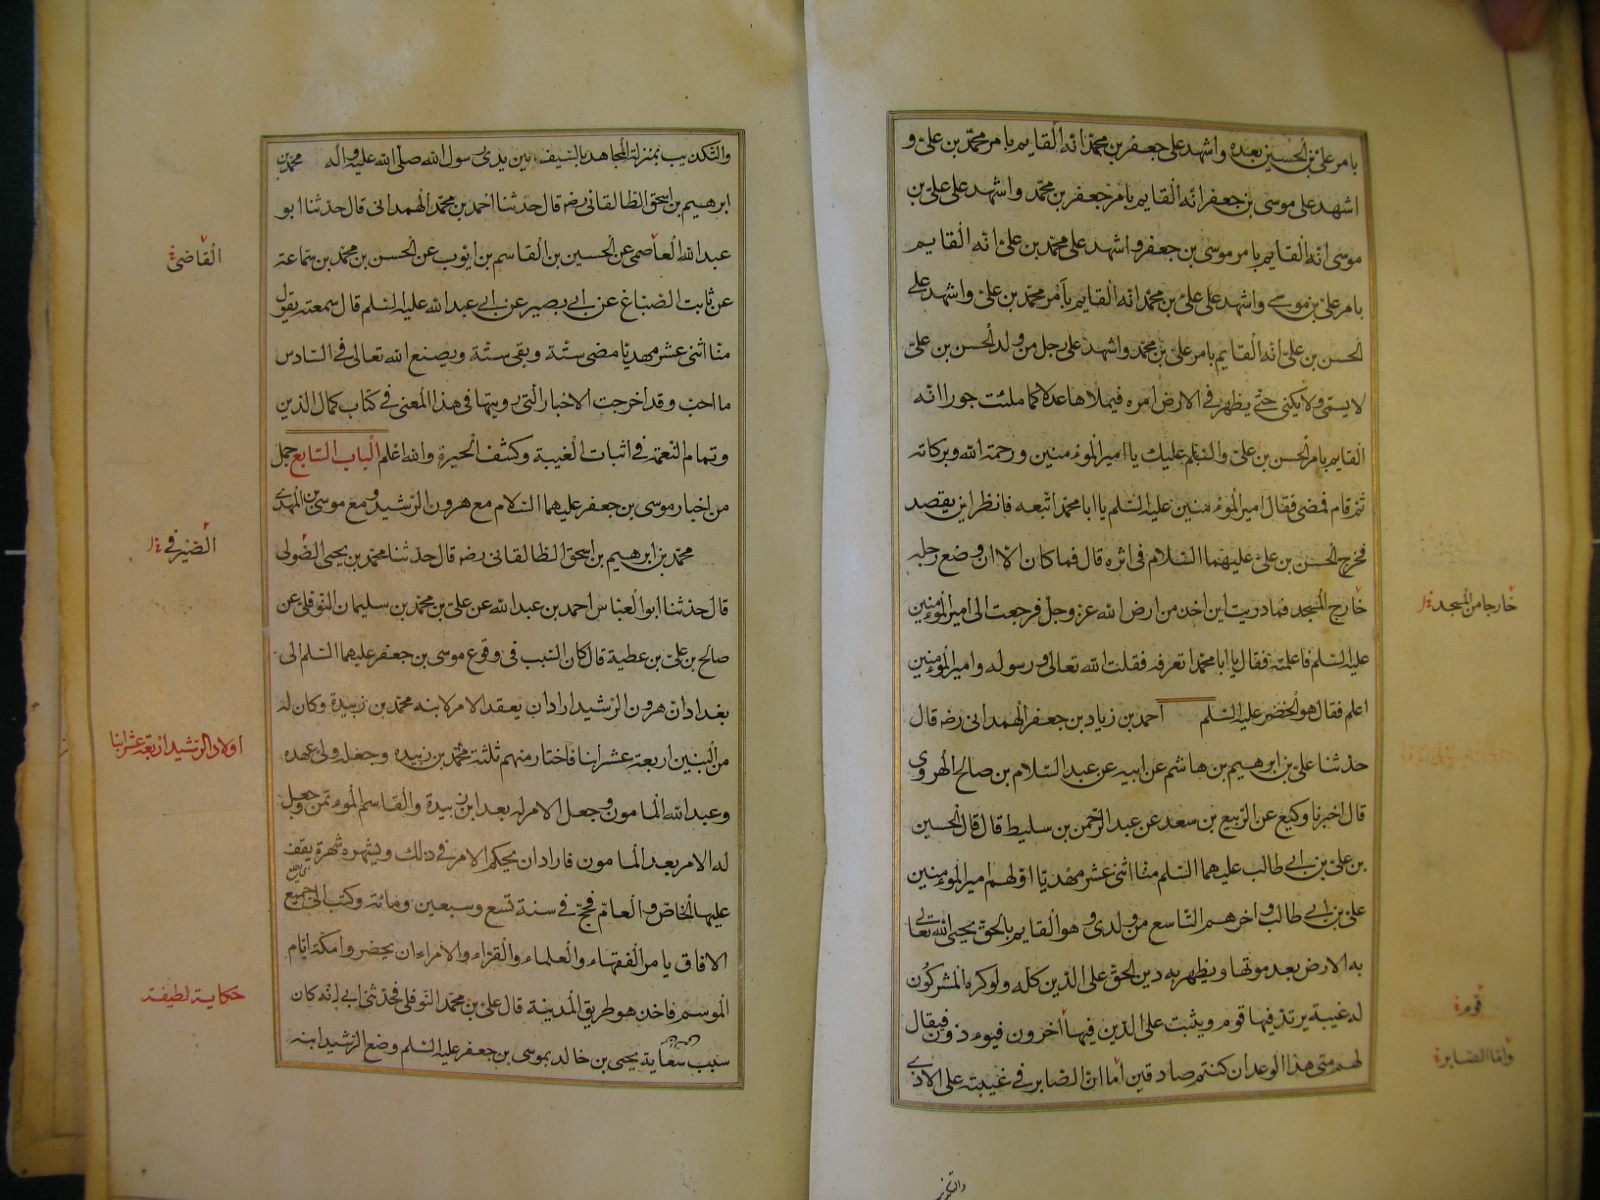 بامر علی بن الحسین بعده واشهد علی جعفر بن محمد انه القایم بامر محمد بن علی و
اشهد علی موسی بن جعفر انه القایم بامر جعفر بن محمد واشهد علی علی بن
موسی انه القایم بامر موسی بن جعفر واشهد علی محمد بن علی انه القایم
بامر علی بن موسی واشهد علی علی بن محمد انه القایم بامر محمد بن علی واشهد علی
الحسن بن علی انه القایم بامر علی بن محمد واشهد علی رجل من ولد الحسن بن علی
لا یسمی ولا یکنی حتی یظهر فی الارض امره فیملاها عدلا کما ملئت جورا انه
القایم بامر الحسن بن علی والسلم علیک یا امیر المؤمنین ورحمة الله وبرکاته
ثم قام فمضی فقال امیر المؤمنین علیه السلم یا ابا محمد اتبعه فانظر این یقصد
فخرج الحسن بن علی علیهما السلام فی اثره قال فما کان الا ان وضع رجله
خارج المسجد فما دریت این اخذ من ارض الله عز وجل فرجعت الی امیر المؤمنین
علیه السلم فاعلمته فقال یا ابا محمد اتعرفه فقلت الله تعالی ورسوله وامیر المؤمنین
اعلم فقال هو الخضر علیه السلم احمد بن زیاد بن جعفر الهمدانی رضه قال
حدثنا علی بن ابرهیم بن هاشم عن ابیه عن عبد السلام بن صالح الهروی
قال اخبرنا وکیع عن الربیع بن سعد عن عبد الرحمن بن سلیط قال قال الحسین
بن علی بن ابی طالب علیهما السلم منا اثنی عشر مهدیا اولهم امیر المؤمنین
علی بن ابی طالب واخرهم التاسع من ولدی وهو القایم بالحق یحیی الله تعالی
به الارض بعد موتها ویظهر به دین الحق علی الدین کله ولو کره المشرکون
له غیبة یرتد فیها قوم ویثبت علی الدین فیها اخرون فیوذون فیقال
لهم متی هذا الوعد ان کنتم صادقین اما ان الصابر فی غیبته علی الاذی
خارجا من المسجد
قوم
واما الصابر
والتکذیب بمنزلة المجاهد بالسیف بین یدی رسول الله صلی الله علیه واله محمد بن
ابرهیم بن اسحق الطالقانی رضه قال حدثنا احمد بن محمد الهمدانی قال حدثنا ابو
عبد الله العاصمی عن الحسین بن القاسم بن ایوب عن الحسن بن محمد بن سماعة
عن ثابت الصباغ عن ابی بصیر عن ابی عبد الله علیه السلم قال سمعته یقول
منا اثنی عشر مهدیا مضی ستة وبقی ستة ویصنع الله تعالی فی السادس
ما احب وقد اخرجت الاخبار التی رویتها فی هذا المعنی فی کتاب کمال الدین
وتمام النعمة فی اثبات الغیبة وکشف الحیرة والله اعلم الباب السابع جمل
من اخبار موسی بن جعفر علیهما السلام مع هرون الرشید ومع موسی بن المهدی
محمد بن ابرهیم بن اسحق الطالقانی رضه قال حدثنا محمد بن یحیی الصولی
قال حدثنا ابو العباس احمد بن عبد الله عن علی بن محمد بن سلیمان النوفلی عن
صالح بن علی بن عطیة قال کان السبب فی وقوع موسی بن جعفر علیهما السلم الی
بغداد ان هرون الرشید اراد ان یعقد الامر لابنه محمد بن زبیدة وکان له
من البنین اربعة عشر ابنا فاختار منهم ثلثة محمد بن زبیده وجعله ولی عهده
وعبد الله المامون وجعل الامر له بعد ابن زبیدة والقاسم المؤتمن وجعل
له الامر بعد المامون فاراد ان یحکم الامر فی ذلک ویشهره شهرة یقف
علیها الخاص والعام فحج فی سنة تسع وسبعین ومائة وکتب الی جمیع
الافاق یامر الفقهاء والعلماء والقراء والامراء ان یحضروا مکة ایام
الموسم فاخذ هو طریق المدینة قال علی بن محمد النوفلی فحدثنی ابی انه کان
سبب سعایة یحیی بن خالد بموسی بن جعفر علیه السلم وضع الرشید ابنه
القاضی
الصیرفی
اولاد الرشید اربعة عشر ابنا
حکایة لطیفة